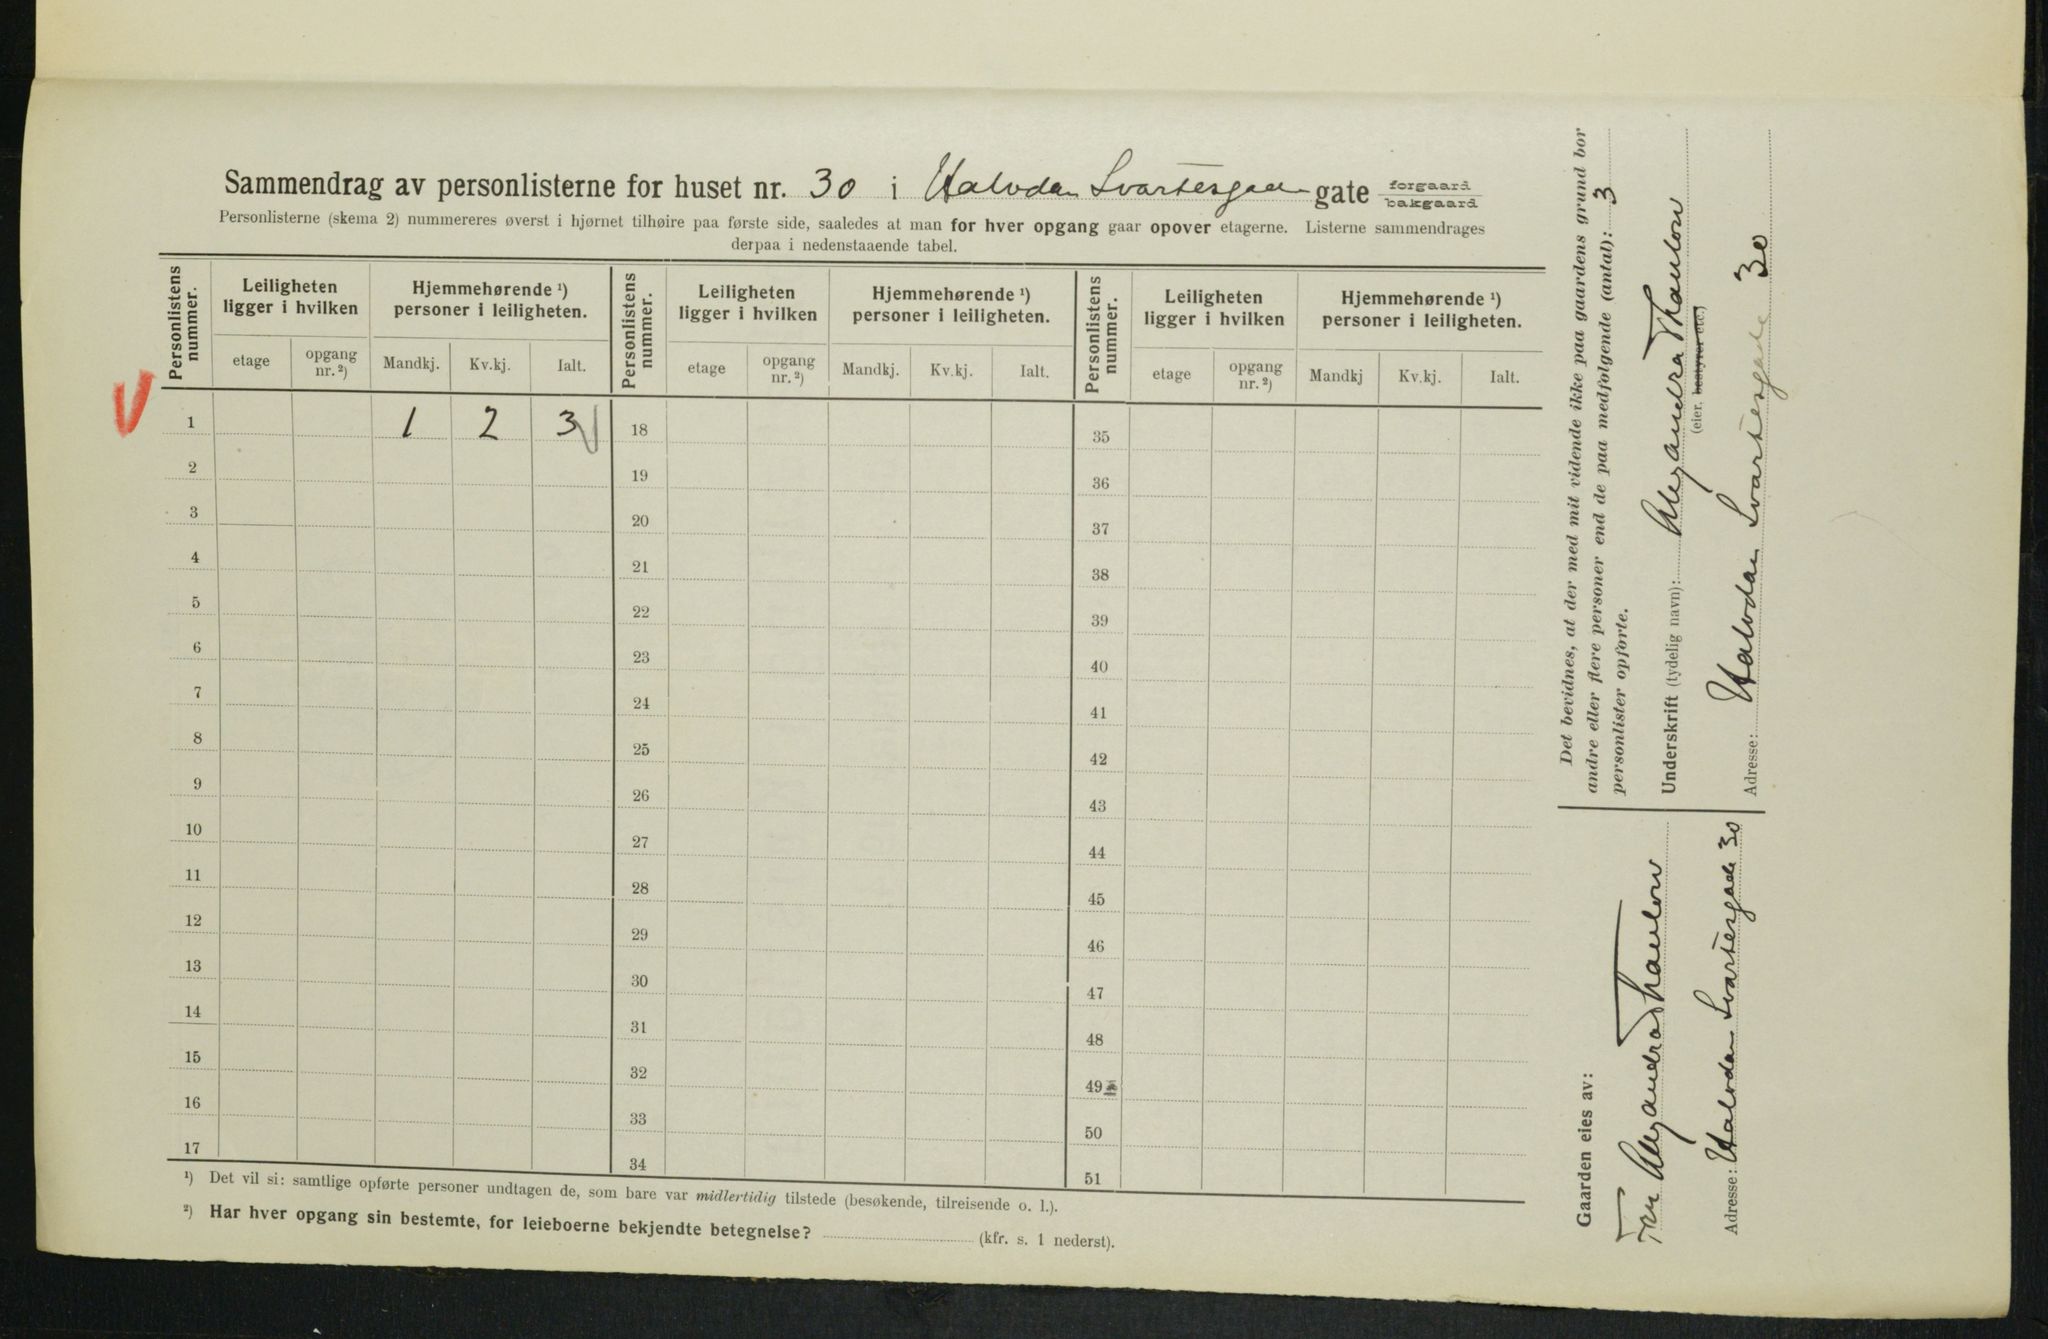 Sammendrag av personlisterne for huset nr. 30 i Halvdan Svartesgade gate forgaard bakgaard
Personlisterne (skema 2) nummereres øverst i hjørnet tilhøire paa første side, saaledes at man for hver opgang gaar opover etagerne. Listerne sammendrages
derpaa i nedenstaaende tabel.
Personlistens nummer. Leiligheten ligger i hvilken Hjemmehørende ¹) personer i leiligheten. Personlistens nummer. Leiligheten ligger i hvilken Hjemmehørende ¹) personer i leiligheten. Personlistens nummer. Leiligheten ligger i hvilken Hjemmehørende ¹) personer i leiligheten.
etage opgang nr. ²) Mandkj. Kv.kj. Ialt. etage opgang nr. ²) Mandkj. Kv.kj. Ialt. etage opgang nr. ²) Mandkj Kv.kj. Ialt.
1 1 2 3 18 35
2 19 36
3 20 37
4 21 38
5 22 39
6 23 40
7 24 41
8 25 42
9 26 43
10 27 44
11 28 45
12 29 46
13 30 47
14 31 48
15 32 49
16 33 50
17 34 51
¹) Det vil si: samtlige opførte personer undtagen de, som bare var midlertidig tilstede (besøkende, tilreisende o. l.).
²) Har hver opgang sin bestemte, for leieboerne bekjendte betegnelse? (kfr. s. 1 nederst).
Det bevidnes, at der med mit vidende ikke paa gaardens grund bor
andre eller flere personer end de paa medfølgende (antal): 3
personlister opførte.
Underskrift (tydelig navn): Alexandra Thaulow
(eier, bestyrer etc.)
Adresse: Halvdan Svartesgade 30
Gaarden eies av:
Fru Alexandra Thaulow
Adresse: Halvdan Svartesgade 30